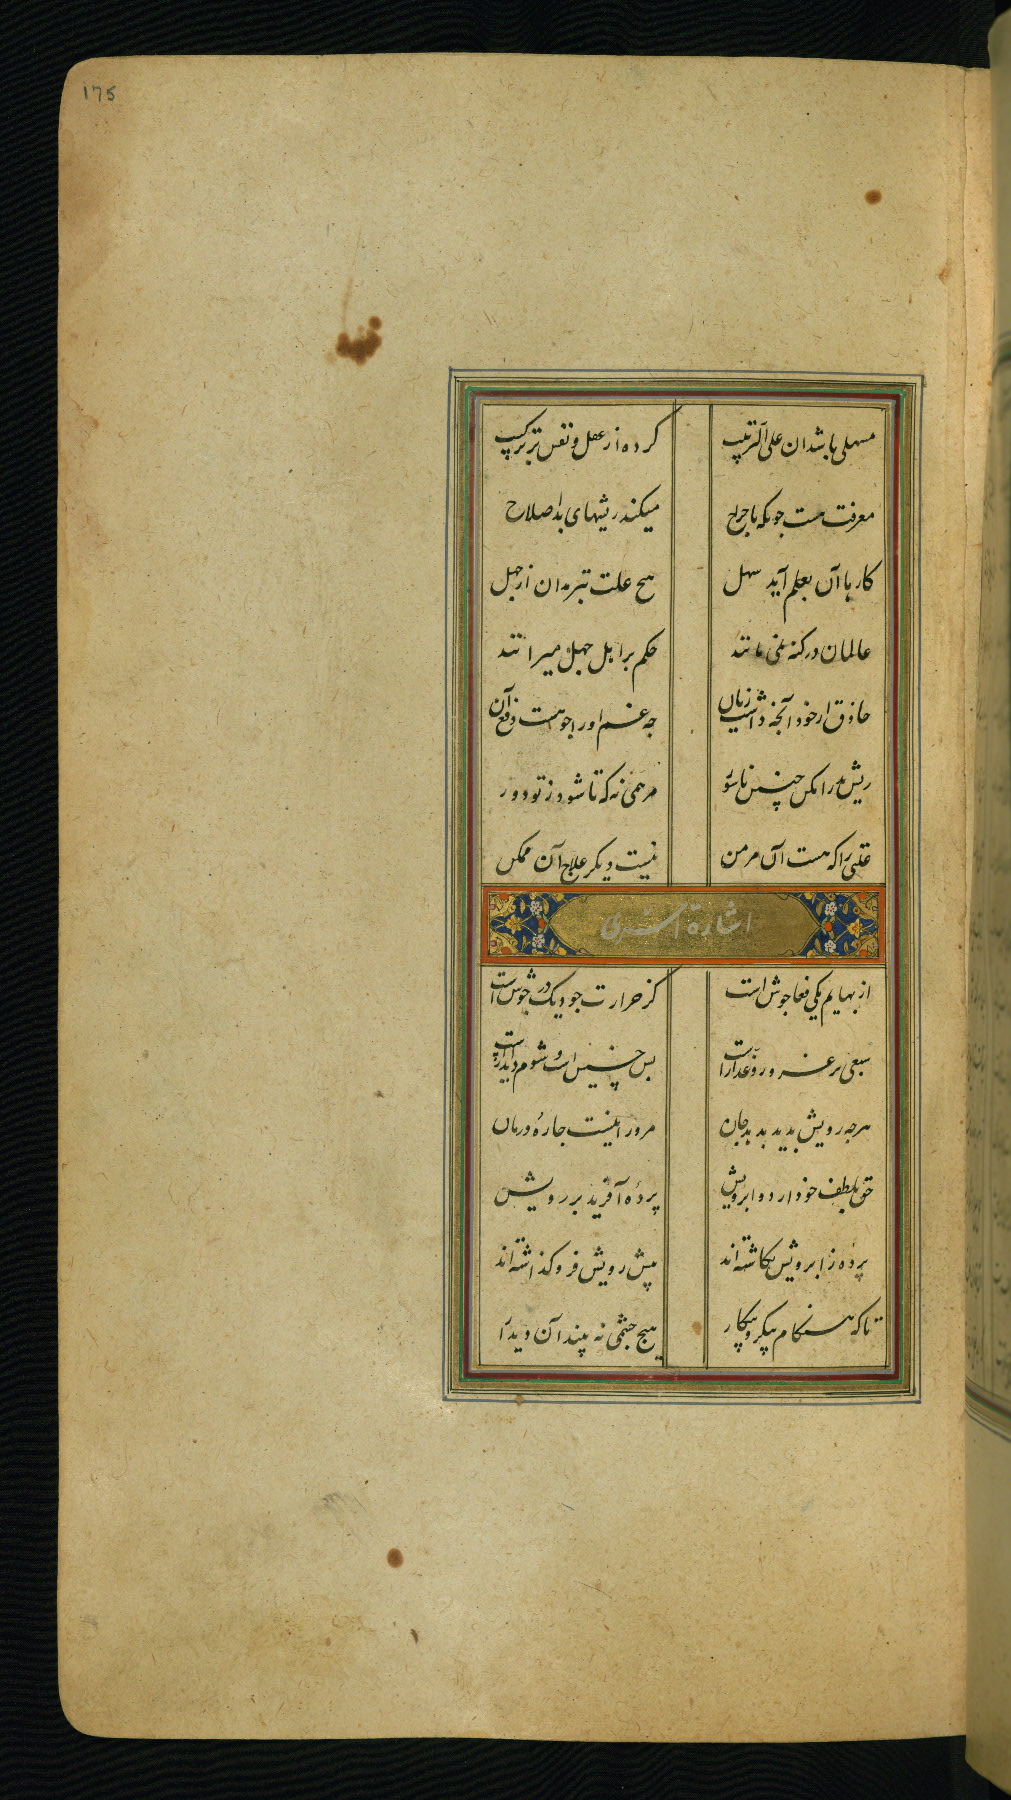 175
مسهلی باشد ان علی الترتیب
کرده از عقل و نفس تر ترکیب
معرفت هست جونکه با جراح
میکند ریشهای بد اصلاح
کار با آن بعلم آید سهل
هیح علت تبر مدان از جهل
عالمان در کنه نمی مانند
حکم بر اهل جهل میرانند
حاذق ار خود آنجه داشت زیان
جه غم او را جو هست دفع آن
ریش بد را مکن چنین ناسور
مرهمی نه که تا شود ز تو دور
علتی را که هست آن مزمن
نیست دیکر علاج آن ممکن
اشارة اخری
از بهایم یکی فعا جوش است
کز حرارت جو دیک در جوش است
سبعی بر غرور و غدارست
بس خسیس است و شوم دیدارست
هرجه رویش بدید بدهد جان
مرورا نیست جاره و درمان
حق بلطف خود از دو ابرویش
پرده آفرید بر رویش
پرده ز ابروش بکاشته اند
پیش رویش فرو کذاشته اند
تا که هنکام پیکر و پیکار
هیج جشمی نه بیند آن دیدار